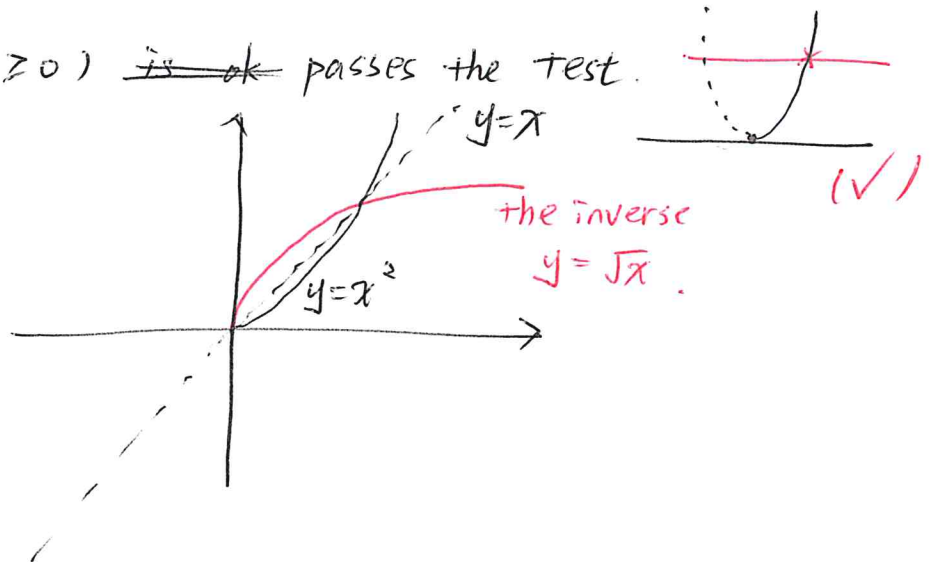 ≥0) is ok passes the test.
y=x
(✓)
the inverse
y=√x.
y=x²